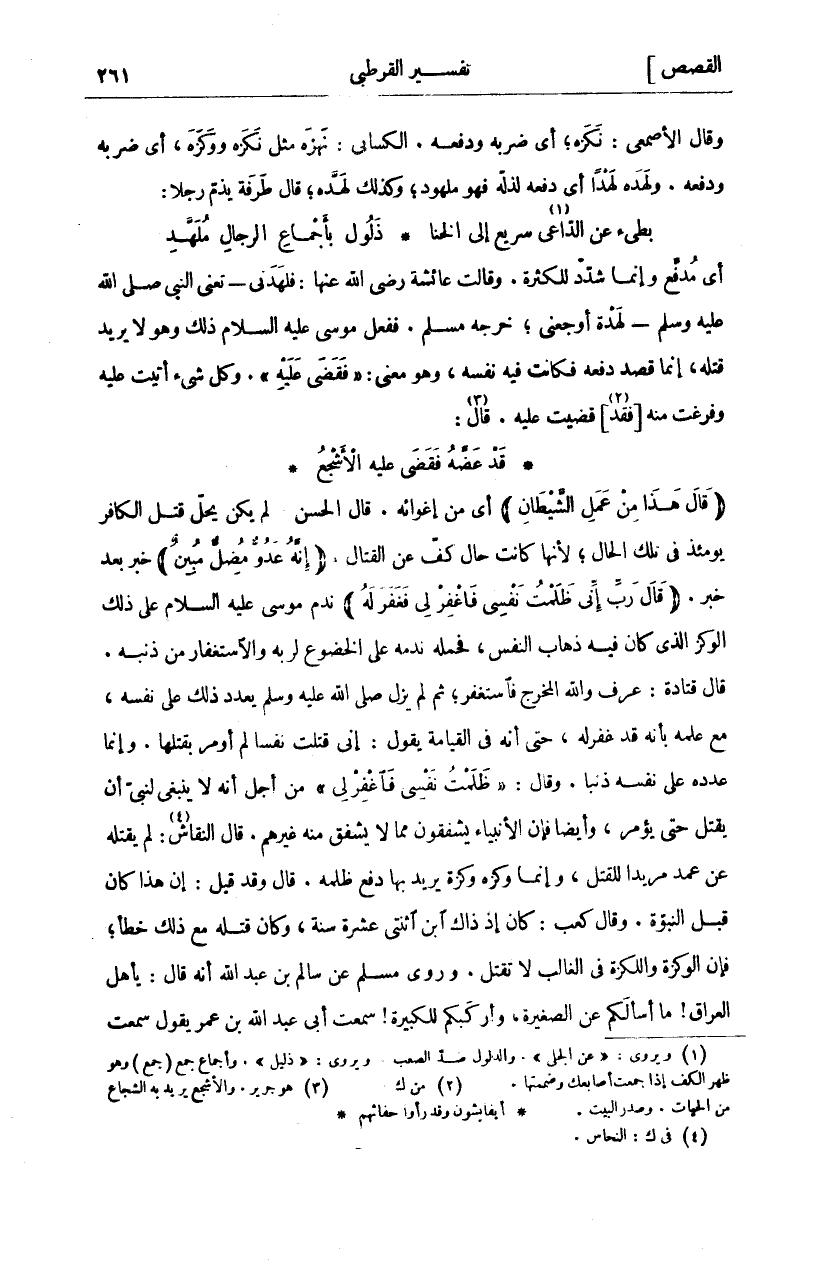 القصص ] تفسير القرطبى ٢٦١
وقال الأصمعى : نَكَزه؛ أى ضربه ودفعه . الكسائى : نَهزَه مثل نَكَزه ووَكَزَه ، أى ضربه
ودفعه . ولهَده لَهْدًا أى دفعه لذلّه فهو ملهود؛ وكذلك لهَّده؛ قال طَرَفة يذمّ رجلا:
بطىء عن الدّاعى (١) سريع إلى الخنا * ذَلُول بأَجْماع الرجالِ مُلَهَّدِ
أى مُدَفَّع وإنما شدّد للكثرة . وقالت عائشة رضى الله عنها : فلهَدَنى — تعنى النبى صلى الله
عليه وسلم — لَهْدة أوجعنى ؛ خرجه مسلم . ففعل موسى عليه السلام ذلك وهو لا يريد
قتله، إنما قصد دفعه فكانت فيه نفسه ، وهو معنى: « فَقَضَى عَلَيْهِ » . وكل شىء أتيت عليه
وفرغت منه [فقد] (٢) قضيت عليه . قال (٣) :
* قَدْ عَضَّهُ فَقَضَى عليه الْأَشْجَعُ *
﴿ قَالَ هَـذَا مِنْ عَمَلِ الشَّيْطَانِ ﴾ أى من إغوائه . قال الحسن لم يكن يحلّ قتل الكافر
يومئذ فى تلك الحال ؛ لأنها كانت حال كفّ عن القتال . ﴿ إِنَّهُ عَدُوٌّ مُضِلٌّ مُبِينٌ ﴾ خبر بعد
خبر . ﴿ قَالَ رَبِّ إِنِّى ظَلَمْتُ نَفْسِى فَاغْفِرْ لِى فَغَفَرَ لَهُ ﴾ ندم موسى عليه السلام على ذلك
الوكز الذى كان فيه ذهاب النفس ، فحمله ندمه على الخضوع لربه والاستغفار من ذنبه .
قال قتادة : عرف والله المخرج فاستغفر؛ ثم لم يزل صلى الله عليه وسلم يعدد ذلك على نفسه ،
مع علمه بأنه قد غفرله ، حتى أنه فى القيامة يقول : إنى قتلت نفسا لم أومر بقتلها . وإنما
عدده على نفسه ذنبا . وقال : « ظَلَمْتُ نَفْسِى فَاغْفِرْ لِى » من أجل أنه لا ينبغى لنبىّ أن
يقتل حتى يؤمر ، وأيضا فإن الأنبياء يشفقون مما لا يشفق منه غيرهم . قال النقاش (٤) : لم يقتله
عن عمد مريدا للقتل ، وإنما وكزه وكزة يريد بها دفع ظلمه . قال وقد قيل : إن هذا كان
قبل النبوّة . وقال كعب : كان إذ ذاك ابن اثنتى عشرة سنة ، وكان قتله مع ذلك خطأ؛
فإن الوكزة واللكزة فى الغالب لا تقتل . وروى مسلم عن سالم بن عبد الله أنه قال : يأهل
العراق! ما أسألَكم عن الصغيرة، وأركبَكم للكبيرة! سمعت أبى عبد الله بن عمر يقول سمعت
(١) ويروى : « عن الجلى » . والذلول ضد الصعب ويروى : « ذليل » . وأجماع جمع (جمع) وهو
ظهر الكف إذا جمعت أصابعك وضممتها . (٢) من ك (٣) هو جرير . والأشجع يريد به الشجاع
من الحيات . وصدر البيت . * أيفايشون وقد رأوا حفاثهم *
(٤) فى ك : النحاس .